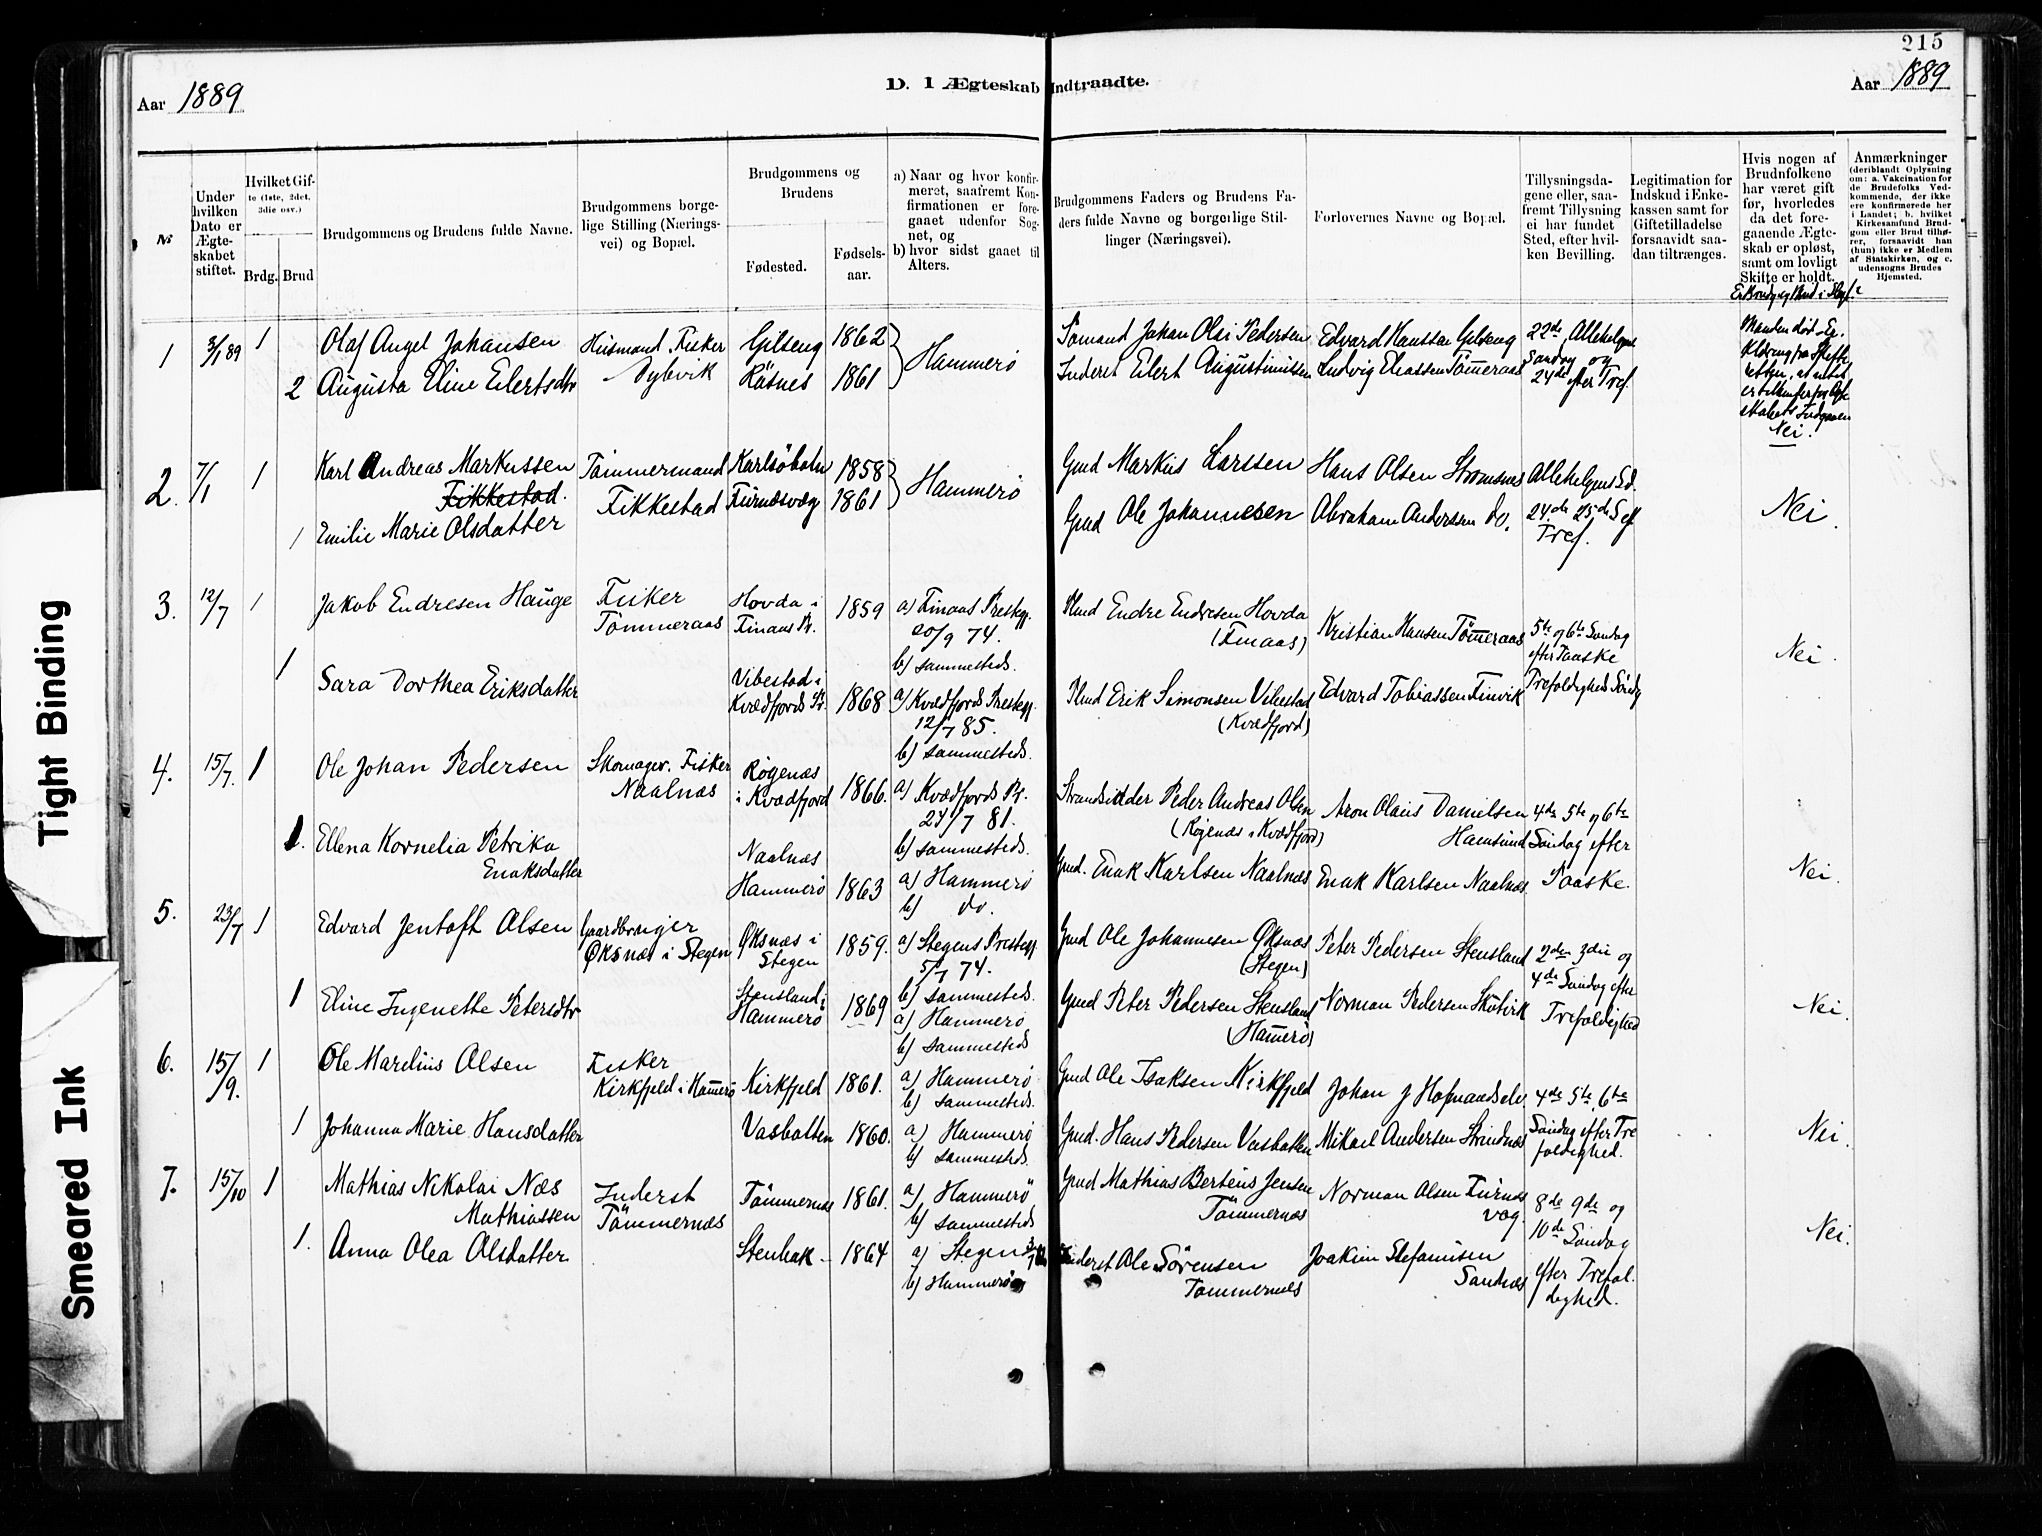 215
D. I Ægteskab Indtraadte.
Aar 1889
Aar 1889
№
Under hvilken Dato er Ægteskabet stiftet.
Hvilket Gifte (1ste, 2det, 3die osv.)
Brdg. Brud
Brudgommens og Brudens fulde Navne.
Brudgommens borgelige Stilling (Næringsvei) og Bopæl.
Brudgommens og Brudens
Fødested.
Fødselsaar.
a) Naar og hvor konfirmeret, saafremt Konfirmationen er foregaaet udenfor Sognet, og
b) hvor sidst gaaet til Alters.
Brudgommens Faders og Brudens Faders fulde Navne og borgerlige Stillinger (Næringsvei).
Forlovernes Navne og Bopæl.
Tillysningsdagene eller, saafremt Tillysning ei har fundet Sted, efter hvilken Bevilling.
Legitimation for Indskud i Enkekassen samt for Giftetilladelse forsaavidt saadan tiltrænges.
Hvis nogen af Brudnfolkene har været gift før, hvorledes da det foregaaende Ægteskab er opløst, samt om lovligt Skifte er holdt.
Anmærkninger (deriblandt Oplysning om: a. Vakcination for de Brudefolks Vedkommende, der ikke ere konfirmerede her i Landet; b. hvilket Kirkesamfund Brudgom eller Brud tilhører, forsaavidt han (hun) ikke er Medlem af Statskirken, og c. udensogns Brudes Hjemsted.
1 3/1 89 1 Olaf Angel Johansen Husmand, Fisker Gilseng 1862 Hammerö Johan Olai Pedersen Edvard Hanssen Gilseng 22de, Allehelgens
2 Augusta Eline Eilertsdtr Dybvik Räsnes 1861 Inderst Eilert Augustinussen Ludvig Eliassen Tömeraas Söndag og 24de efter Tref.
Manden död
Nei.
2. 7/1 1 Karl Andreas Markussen Tömmermand Karlsöholm 1858 Hammerö Gmd Markus Larssen Hans Olsen Strömsnes Allehelgens Sd.
Fikkestad. Fikkestad Furnæsvæg 1861
1 Emilie Marie Olsdatter Gmd Ole Johannesen Abraham Anderssen do. 24de 25de S ef. Tref. Nei.
3. 12/7 1 Jakob Endresen Hauge Fisker Tömmeraas Hovda i Finaas Pr. 1859 a) Finaas Prestegj. 20/9 74. b) sammesteds. Endre Endresen Hovda (Finaas) Kristian Hansen Tömeraas 5te og 6te Söndag efter Paaske
1 Sara Dorthea Eriksdatter Vebestad i Kvædfjords Pr. 1868 a) Kvædfjords Prestegj. 12/7 85. b) sammesteds. Erik Simonsen Vebestad (Kvædfjord) Edvard Tobiassen Finvik Trefoldigheds Söndg Nei.
4. 15/7. 1 Ole Johan Pedersen Skomager. Fisker Naalnæs Røgenæs i Kvædfjord 1866. a) Kvædfjords Pr. 24/7 81. b) sammesteds. Strandsidder Peder Andreas Olsen (Røgenæs i Kvædfjord) Aron Olaus Danielsen Hamsund 4de 5te og 6te Söndag efter Paaske.
1. Ellena Kornelia Petrika Enoksdatter Naalnæs Hammerö 1863 a) Hammerö b) do. Gmd. Enok Karlsen Naalnæs Enok Karlsen Naalnæs. Nei.
5. 23/7 1 Edvard Jentoft Olsen Gaardbruger Øksnæs i Stegen Øksnæs i Stegen 1859. a) Stegens Prestegj. 5/7 74. b) sammesteds. Gmd Ole Johannesen Øksnæs (Stegen) Peter Pedersen Stensland 2den 3die og 4de Söndag efter Trefoldighed
1 Eline Ingenette Petersdtr Stensland i Hammerö 1869 a) Hammerö b) sammesteds Gmd Peter Pedersen Stensland (Hamerö) Norman Pedersen Skutvik Nei.
6. 15/9. 1 Ole Marelius Olsen Fisker Kirkfjeld i Hamerö Kirkfjeld 1861. a) Hammerö b) sammesteds. Gmd Ole Isaksen Kirkfjeld Johan J 4de 5te 6te Söndag efter Trefoldighed.
1 Johanna Marie Hansdatter Vasbotten 1860. a) Hammerö b) sammesteds. Gmd. Hans Pedersen Vasbotten Mikael Andersen Strindnæs Nei.
7. 15/10 1 Mathias Nikolai Næs Mathiassen Inderst Tömmernæs Tömmernæs 1861. a) Hammerö b) sammesteds Gmd Mathias Bertens Jensen Tömmernæs Norman Olsen Furnæsvåg. 8de 9de og 10de Söndag efter Trefoldighed.
1. Anna Olea Olsdatter Stenbak 1864 a) Stegen b) Hammerö Inderst Ole Sörensen Tömmernæs Joakim Stefanusen Sandnæs Nei.
Tight Binding
Smeared Ink